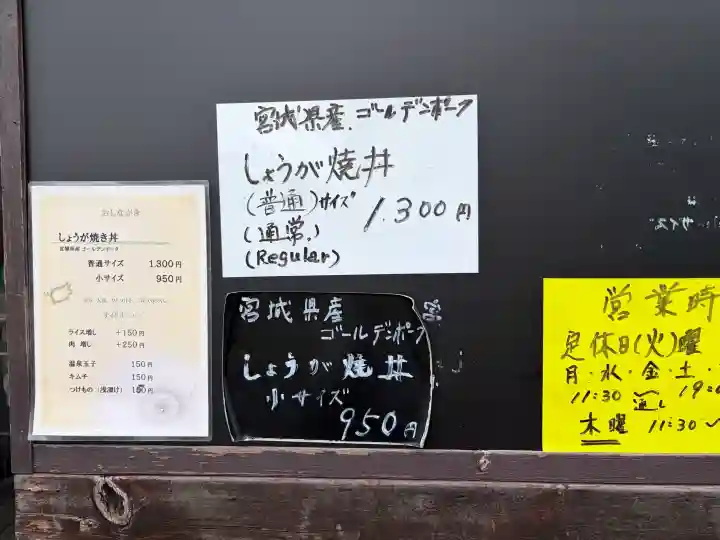 おしながき
しょうが焼き丼
宮城県産 ゴールデンポーク
普通サイズ 1,300円
小サイズ 950円
ライス増し +150円
肉 増し +250円
温泉玉子 150円
キムチ 150円
つけもの (浅漬け)
宮城県産.ゴールデンポーク
しょうが焼丼
(普通)サイズ 1.300円
(通常.)
(Regular)
宮城県産
ゴールデンポーク
しょうが焼丼
小サイズ
950円
営業時
定休日(火)曜
月・水・金・土・
11:30 通し 19:0
木曜 11:30〜